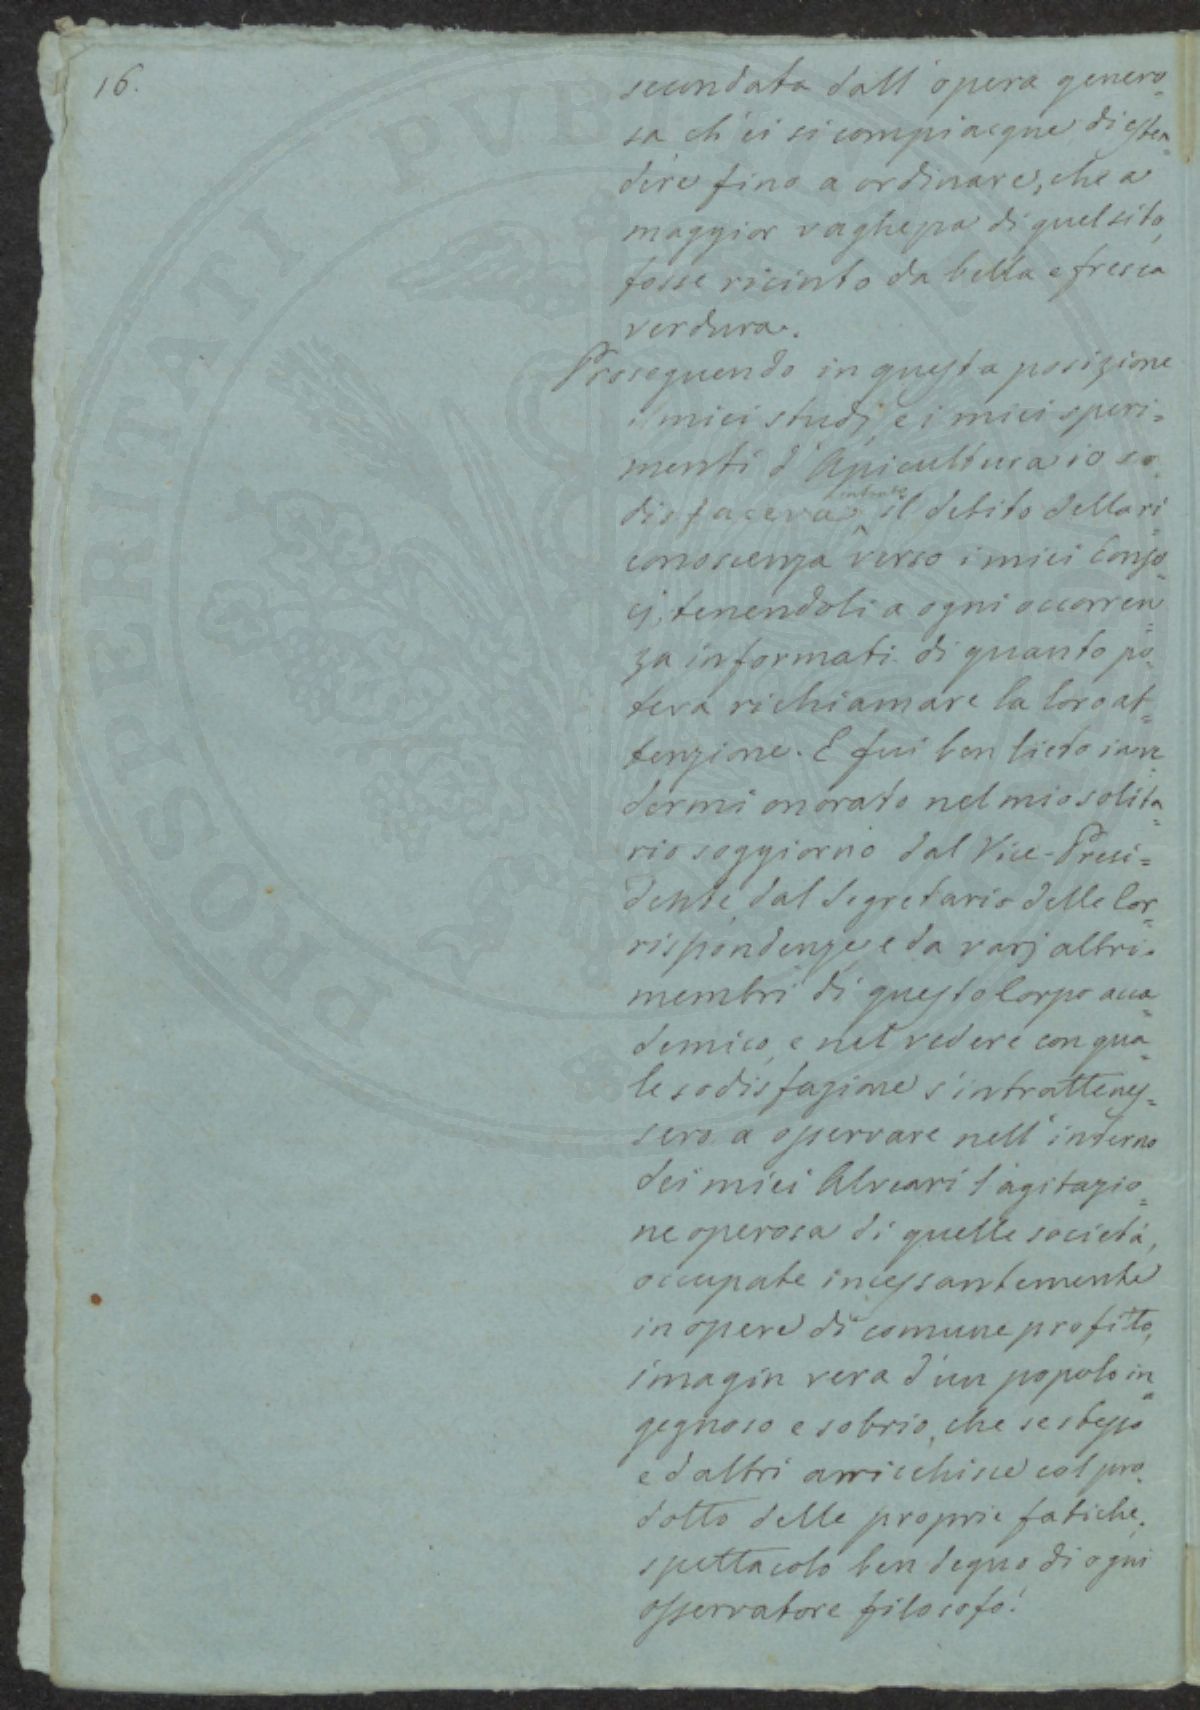 16.
secondata dall'opera genero=
sa ch'ei si compiacque di esten=
dere fino a ordinare, che a
maggior vaghezza di quel sito,
fosse ricinto da bella e fresca
verdura.
Proseguendo in questa posizione
i miei studj, e i miei speri=
menti d'Apicultura io so=
disfaceva intanto il debito della ri=
conoscenza verso i miei Conso=
cj, tenendoli a ogni occorren=
za informati di quanto po=
teva richiamare la loro at=
tenzione. E fui ben lieto in ve=
dermi onorato nel mio solita=
rio soggiorno dal Vice-Presi=
dente, dal Segretario delle Cor=
rispondenze e da varj altri
membri di questo Corpo acca=
demico, e nel vedere con qua=
le sodisfazione s'intrattenes=
sero a osservare nell'interno
dei miei Alveari l'agitazio=
ne operosa di quelle società,
occupate incessantemente
in opere di comune profitto,
imagin vera d'un popolo in=
gegnoso e sobrio, che se stesso
ed altri arricchisce col pro=
dotto delle proprie fatiche,
spettacolo ben degno di ogni
osservatore filosofo!
PROSPERITATI PVBLICAE